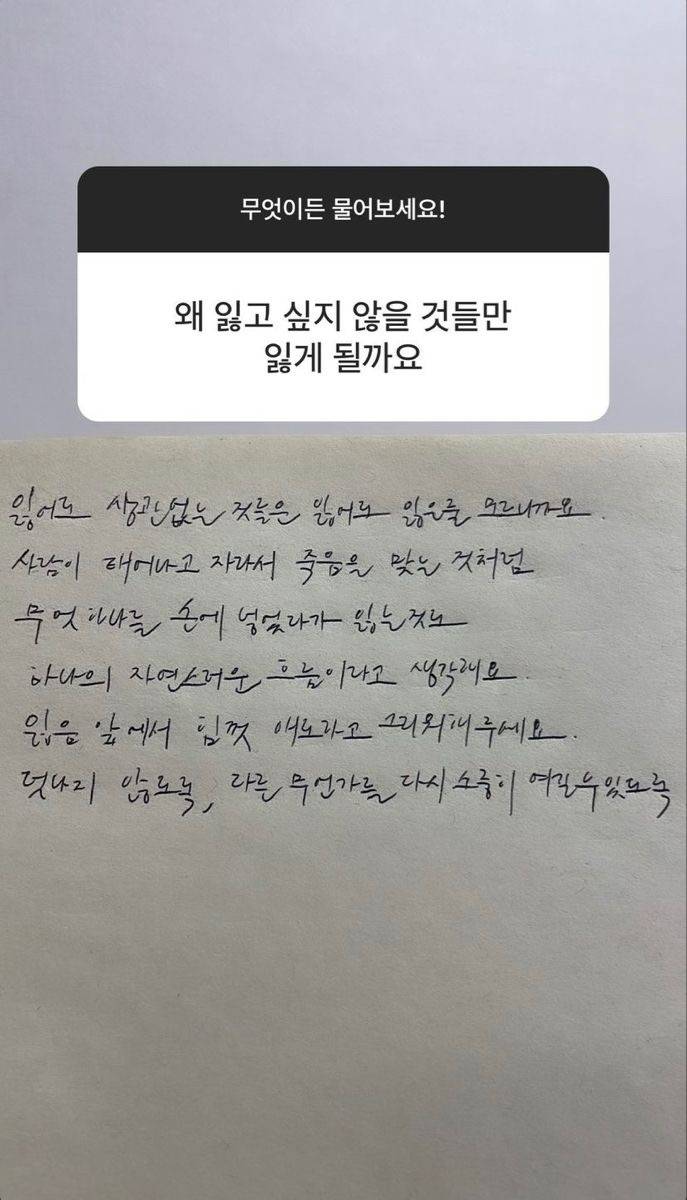 무엇이든 물어보세요!
왜 잃고 싶지 않을 것들만
잃게 될까요
잃어도 상관없는 것들은 잃어도 잃은줄 모르니까요.
사람이 태어나고 자라서 죽음을 맞는 것처럼
무엇 하나를 손에 넣었다가 잃는것도
하나의 자연스러운 흐름이라고 생각해요.
잃음 앞에서 힘껏 애도하고 그리워해주세요.
덧나지 않도록, 다른 무언가를 다시 소중히 여길수있도록